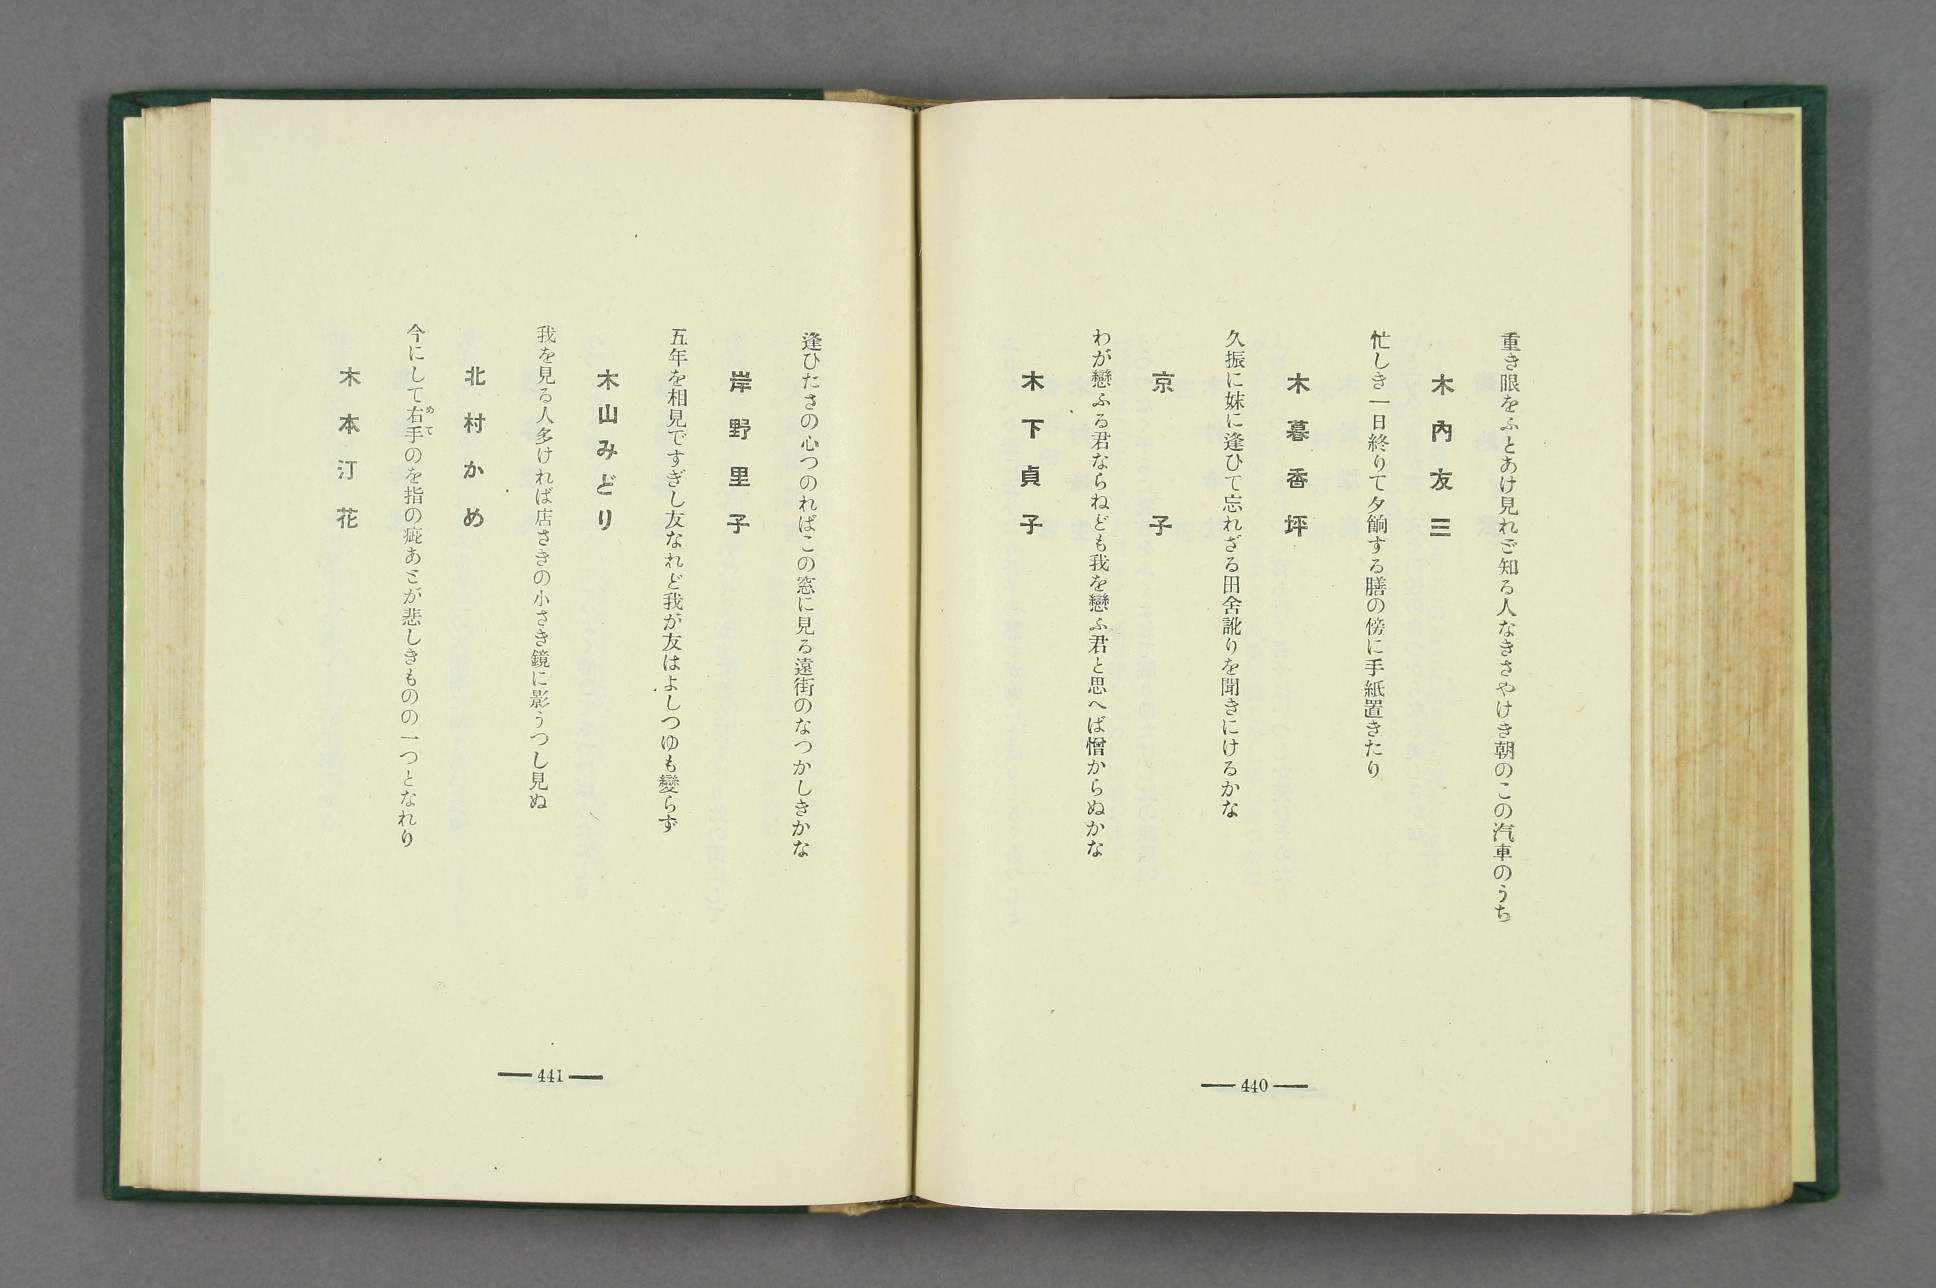 重き眼をふとあけ見れど知る人なきさやけき朝のこの汽車のうち
木內友三
忙しき一日終りて夕餉する膳の傍に手紙置きたり
木暮香坪
久振に妹に逢ひて忘れざる田舍訛りを聞きにけるかな
京子
わが戀ふる君ならねども我を戀ふ君と思へば憎からぬかな
木下貞子
— 440 —
逢ひたさの心つのればこの窓に見る遠街のなつかしきかな
岸野里子
五年を相見ですぎし友なれど我が友はよしつゆも變らず
木山みどり
我を見る人多ければ店さきの小さき鏡に影うつし見ぬ
北村かめ
今にして右手のを指の疵あとが悲しきものの一つとなれり
めて
木本汀花
— 441 —